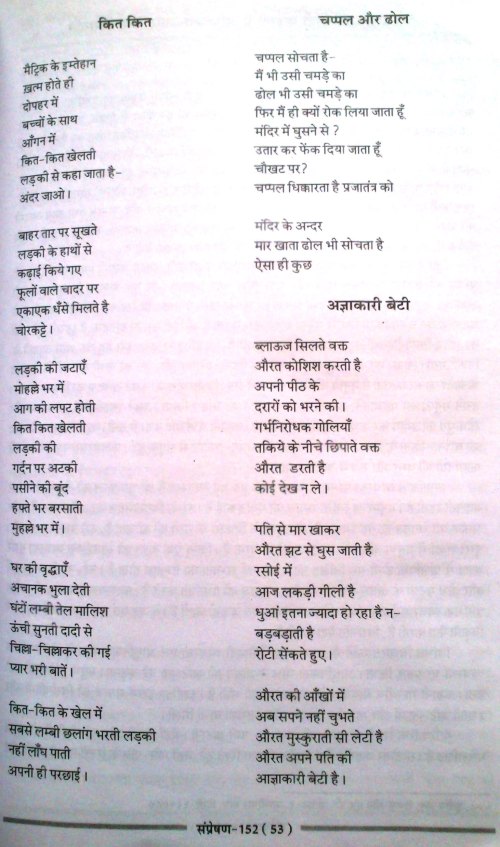 कित कित
मैट्रिक के इम्तेहान
ख़त्म होते ही
दोपहर में
बच्चों के साथ
आँगन में
कित-कित खेलती
लड़की से कहा जाता है-
अंदर जाओ।
बाहर तार पर सूखते
लड़की के हाथों से
कढ़ाई किये गए
फूलों वाले चादर पर
एकाएक धँसे मिलते है
चोरकट्टे।
लड़की की जटाएँ
मोहल्ले भर में
आग की लपट होती
कित कित खेलती
लड़की की
गर्दन पर अटकी
पसीने की बूंद
हफ्ते भर बरसाती
मुहल्ले भर में।
घर की वृद्धाएँ
अचानक भुला देती
घंटों लम्बी तेल मालिश
ऊंची सुनती दादी से
चिल्ला-चिल्लाकर की गई
प्यार भरी बातें।
कित-कित के खेल में
सबसे लम्बी छलांग भरती लड़की
नहीं लाँघ पाती
अपनी ही परछाई।
चप्पल और ढोल
चप्पल सोचता है-
मैं भी उसी चमड़े का
ढोल भी उसी चमड़े का
फिर मैं ही क्यों रोक लिया जाता हूँ
मंदिर में घुसने से ?
उतार कर फेंक दिया जाता हूँ
चौखट पर?
चप्पल धिक्कारता है प्रजातंत्र को
मंदिर के अन्दर
मार खाता ढोल भी सोचता है
ऐसा ही कुछ
अज्ञाकारी बेटी
ब्लाऊज सिलते वक्त
औरत कोशिश करती है
अपनी पीठ के
दरारों को भरने की।
गर्भनिरोधक गोलियाँ
तकिये के नीचे छिपाते वक्त
औरत डरती है
कोई देख न ले।
पति से मार खाकर
औरत झट से घुस जाती है
रसोई में
आज लकड़ी गीली है
धुआं इतना ज्यादा हो रहा है न-
बड़बड़ाती है
रोटी सेंकते हुए।
औरत की आँखों में
अब सपने नहीं चुभते
औरत मुस्कुराती सी लेटी है
औरत अपने पति की
आज्ञाकारी बेटी है।
संप्रेषण-152 ( 53 )